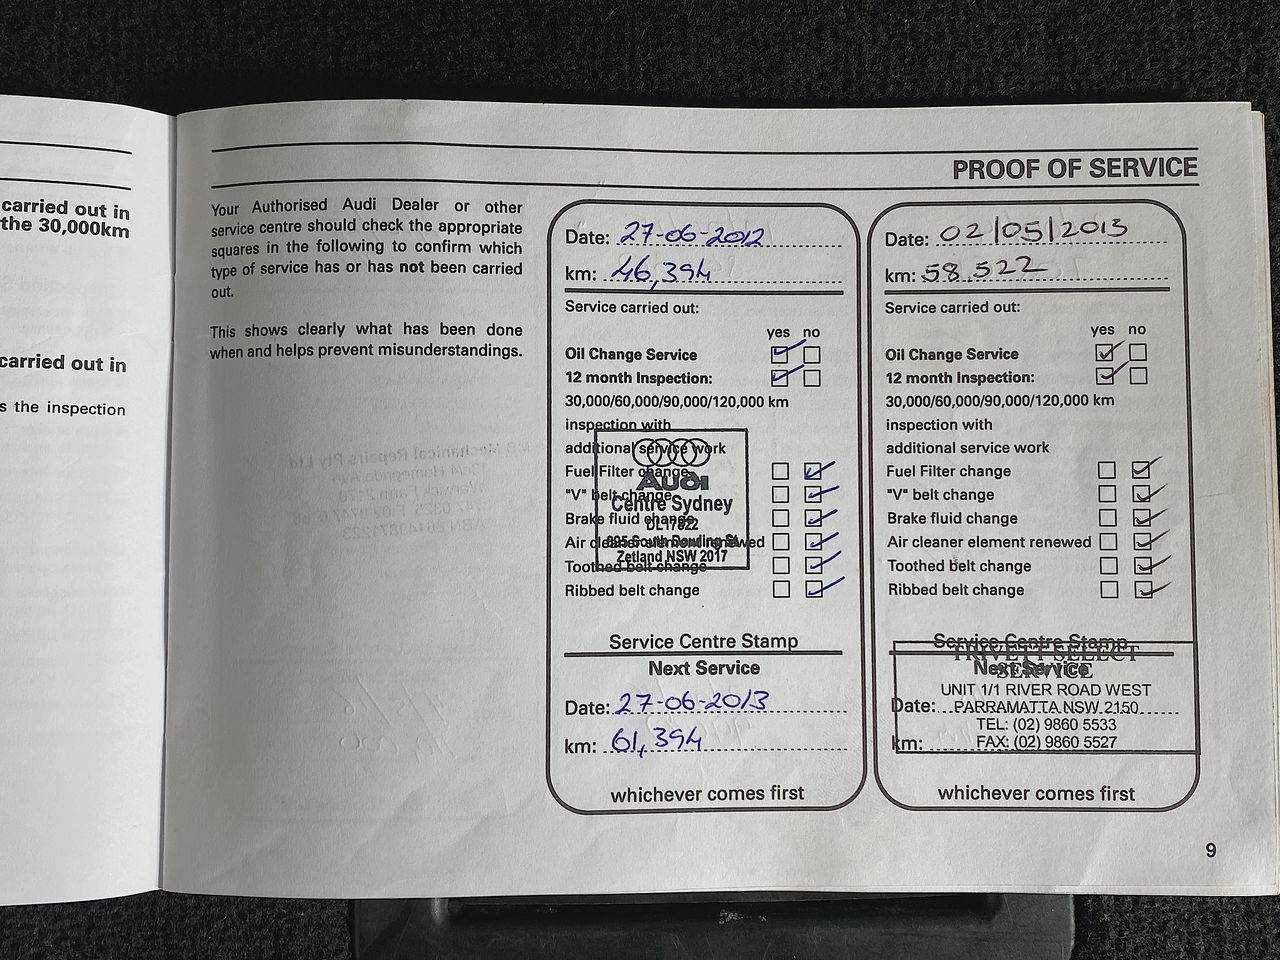 carried out in
the 30,000km
carried out in
s the inspection
PROOF OF SERVICE
Your Authorised Audi Dealer or other
service centre should check the appropriate
squares in the following to confirm which
type of service has or has not been carried
out.
This shows clearly what has been done
when and helps prevent misunderstandings.
Date: 27-06-2012
km: 46,394
Service carried out:
yes no
Oil Change Service
12 month Inspection:
30,000/60,000/90,000/120,000 km
inspection with
additional service work
Fuel Filter change
"V" belt change
Brake fluid change
Air cleaner element renewed
Toothed belt change
Ribbed belt change
Audi
Centre Sydney
DL17822
895 South Dowling St
Zetland NSW 2017
Service Centre Stamp
Next Service
Date: 27-06-2013
km: 61,394
whichever comes first
Date: 02/05/2013
km: 58,522
Service carried out:
yes no
Oil Change Service
12 month Inspection:
30,000/60,000/90,000/120,000 km
inspection with
additional service work
Fuel Filter change
"V" belt change
Brake fluid change
Air cleaner element renewed
Toothed belt change
Ribbed belt change
Service Centre Stamp
TRIVETT SELECT
SERVICE
Next Service
UNIT 1/1 RIVER ROAD WEST
Date: PARRAMATTA NSW 2150
TEL: (02) 9860 5533
km: FAX: (02) 9860 5527
whichever comes first
9